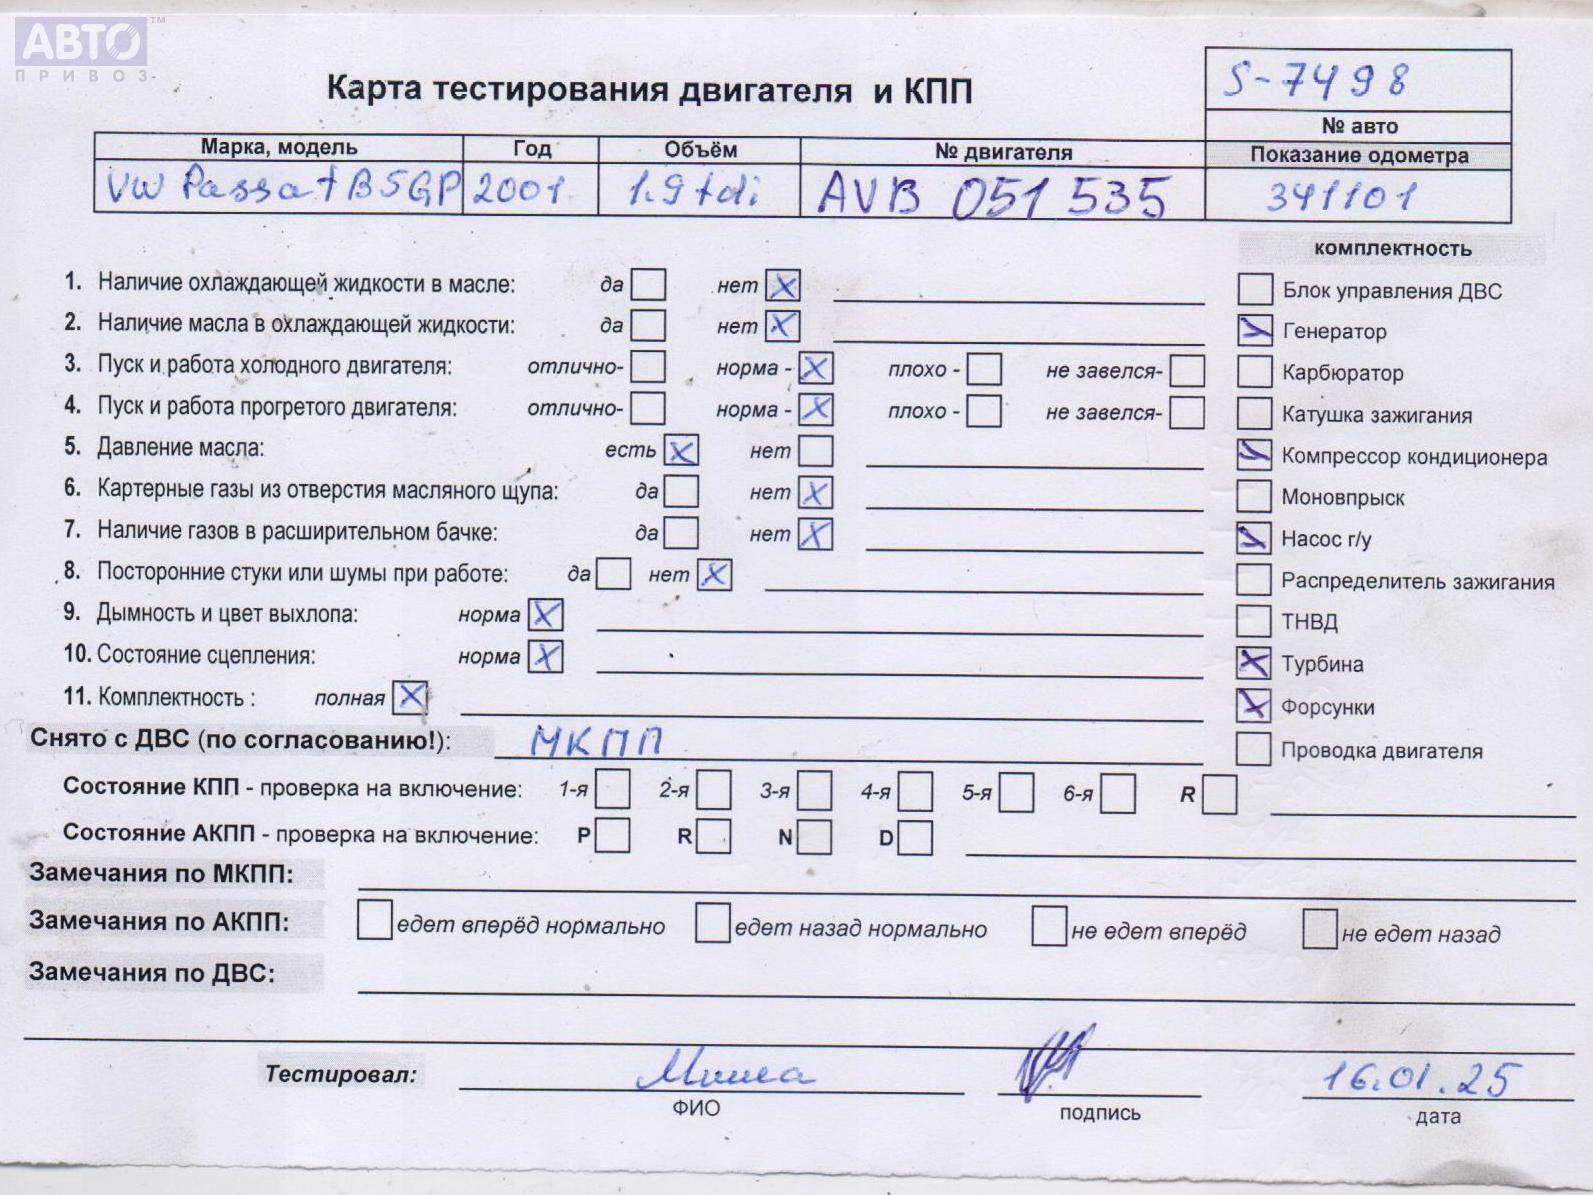 АВТО™
ПРИВОЗ-
Карта тестирования двигателя и КПП
S-7498
№ авто
Марка, модель Год Объём № двигателя Показание одометра
VW Passat B5GP 2001 1.9 tdi AVB 051 535 341101
комплектность
1. Наличие охлаждающей жидкости в масле: да нет X
Блок управления ДВС
2. Наличие масла в охлаждающей жидкости: да нет X
Генератор
3. Пуск и работа холодного двигателя: отлично- норма - X плохо - не завелся-
Карбюратор
4. Пуск и работа прогретого двигателя: отлично- норма - X плохо - не завелся-
Катушка зажигания
5. Давление масла: есть X нет
Компрессор кондиционера
6. Картерные газы из отверстия масляного щупа: да нет X
Моновпрыск
7. Наличие газов в расширительном бачке: да нет X
Насос г/у
8. Посторонние стуки или шумы при работе: да нет X
Распределитель зажигания
9. Дымность и цвет выхлопа: норма X
ТНВД
10. Состояние сцепления: норма X
Турбина
11. Комплектность : полная X
Форсунки
Снято с ДВС (по согласованию!): МКПП
Проводка двигателя
Состояние КПП - проверка на включение: 1-я 2-я 3-я 4-я 5-я 6-я R
Состояние АКПП - проверка на включение: P R N D
Замечания по МКПП:
Замечания по АКПП: едет вперёд нормально едет назад нормально не едет вперёд не едет назад
Замечания по ДВС:
Тестировал: Миша 16.01.25
ФИО подпись дата